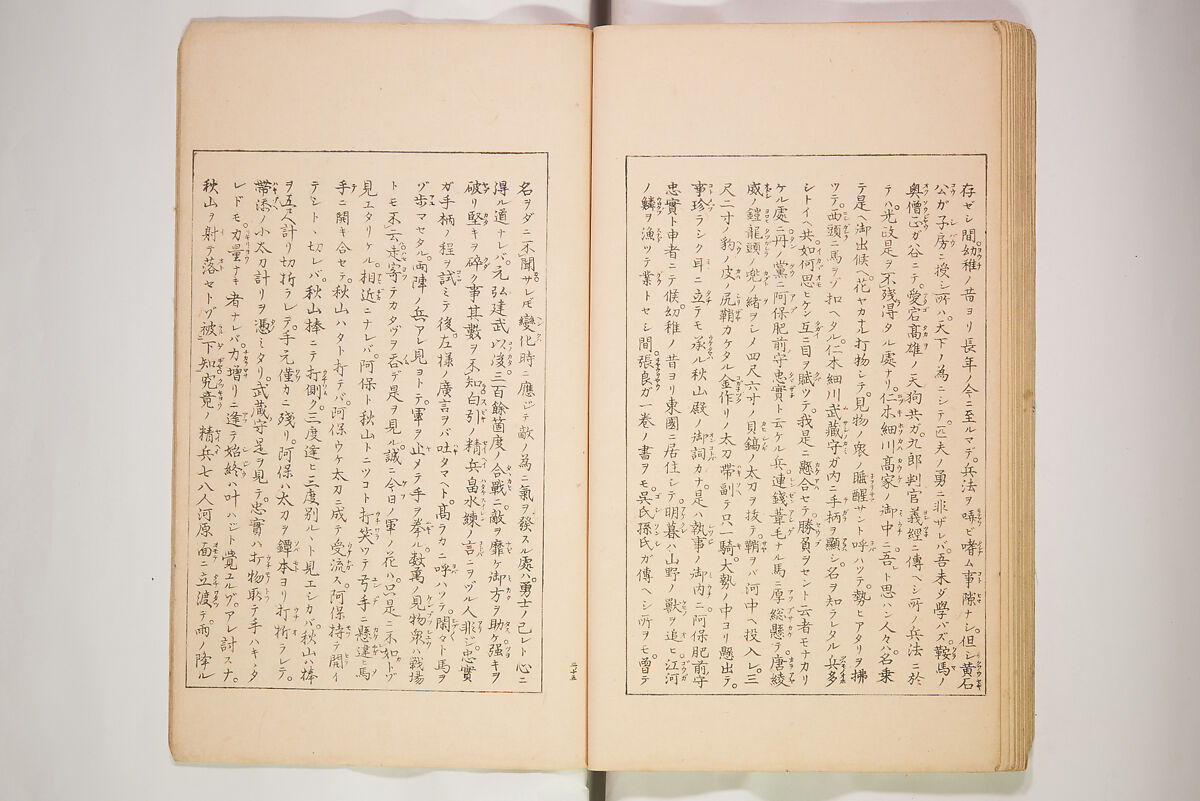 存ゼシ間幼稚ノ昔ヨリ長年ノ今ニ至ルマデ。兵法ヲ嗜ム事隙ナシ。但シ黄石
公ガ子房ニ授シ所ハ天下ノ為ニシテ。匹夫ノ勇ニ非ザレバ。吾未ダ學バズ。鞍馬ノ
奥僧正ガ谷ニテ愛宕高雄ノ天狗共ガ。九郎判官義經ニ傳ヘシ所ノ兵法ニ於
テハ。光政是ヲ不殘得タル處ナリ。仁木細川高家ノ御中ニ吾ト思ハン人々ハ名乗
テ是ヘ御出候ヘ。花ヤカナル打物シテ見物ノ衆ノ睡醒サント呼ハツテ。勢ヒアタリヲ拂
ツテ。西頭ニ馬ヲゾ扣ヘタル。仁木細川武藏守ガ内ニ手柄ヲ顯シ。名ヲ知ラレタル兵多
シトイヘ共。如何思ヒケン互ニ目ヲ賦ツテ。我是ニ懸合セテ勝負ヲセント云者モナカリ
ケル處ニ。丹ノ黨ニ阿保肥前守忠實ト云ケル兵。連錢葦毛ナル馬ニ厚總懸テ。唐綾
威ノ鎧龍頭ノ兜ノ緒ヲシメ。四尺六寸ノ貝鎬ノ太刀ヲ抜テ。鞘ヲバ河中ヘ投入レ。三
尺二寸ノ豹ノ皮ノ尻鞘カケタル金作リノ太刀帶副テ。只一騎大勢ノ中ヨリ懸出テ。
事珍ラシク耳ニ立テモ承ル秋山殿ノ御詞カナ。是ハ執事ノ御内ニ阿保肥前守
忠實ト申者ニテ候。幼稚ノ昔ヨリ東國ニ居住シテ。明暮ハ山野ノ獸ヲ追ヒ江河
ノ鱗ヲ漁ツテ業トセシ間。張良ガ一巻ノ書ヲモ。呉氏孫氏ガ傳ヘシ所ヲモ。曽テ
名ヲダニ不聞。サレ𪜈變化時ニ應ジテ敵ノ為ニ氣ヲ發スル處ハ。勇士ノ己レト心ニ
得ル道ナレバ。元弘建武以後三百餘箇度ノ合戰ニ。敵ヲ靡ケ御方ヲ助ケ。強キヲ
破リ堅キヲ碎ク事其數ヲ不知。白引ノ精兵。畠水練ノ言ニヲヅル人非ジ。忠實
ガ手柄ノ程ヲ試ミテ後。左様ノ廣言ヲバ吐タマヘト。高ラカニ呼ハツテ。閑々ト馬ヲ
ゾ歩マセタル。両陣ノ兵アレ見ヨトテ。軍ヲ止メテ手ヲ拳ル。数萬ノ見物衆ハ戰場
トモ不云走寄テ。カタヅヲ呑デ是ヲ見ル。誠ニ今日ノ軍ノ花ハ。只是ニ不如トゾ
見エタリケル。相近ニナレバ阿保ト秋山トニツコト打笑ツテ。弓手ニ懸違ヒ馬
手ニ開キ合セテ。秋山ハタト打テバ。阿保ウケ太刀ニ成テ受流ス。阿保持テ開イ
テシトヽ切レバ。秋山棒ニテ打側ク。三度逢ヒ三度別ルヽト見エシカバ。秋山ハ棒
ヲ五尺計リ切折ラレテ。手元僅カニ殘リ。阿保ハ太刀ヲ鐔本ヨリ打折ラレテ。
帶添ノ小太刀計リヲ憑ミタリ。武藏守是ヲ見テ。忠實ハ打物取テ手ハキヽタ
レドモ。力量ナキ者ナレバ。力增リニ逢テ始終ハ叶ハジト覺エルゾ。アレ討スナ。
秋山ヲ射テ落セトゾ被下知。究竟ノ精兵七八人河原面ニ立渡テ。雨ノ降ル
二十五